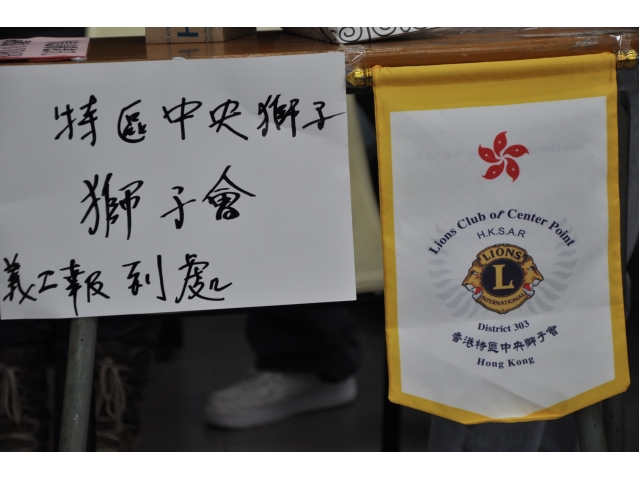 特區中央獅子
獅子會
義工報到處
Lions Club of Center Point
H.K.S.A.R
LIONS
L
INTERNATIONAL
District 303
香港特區中央獅子會
Hong Kong